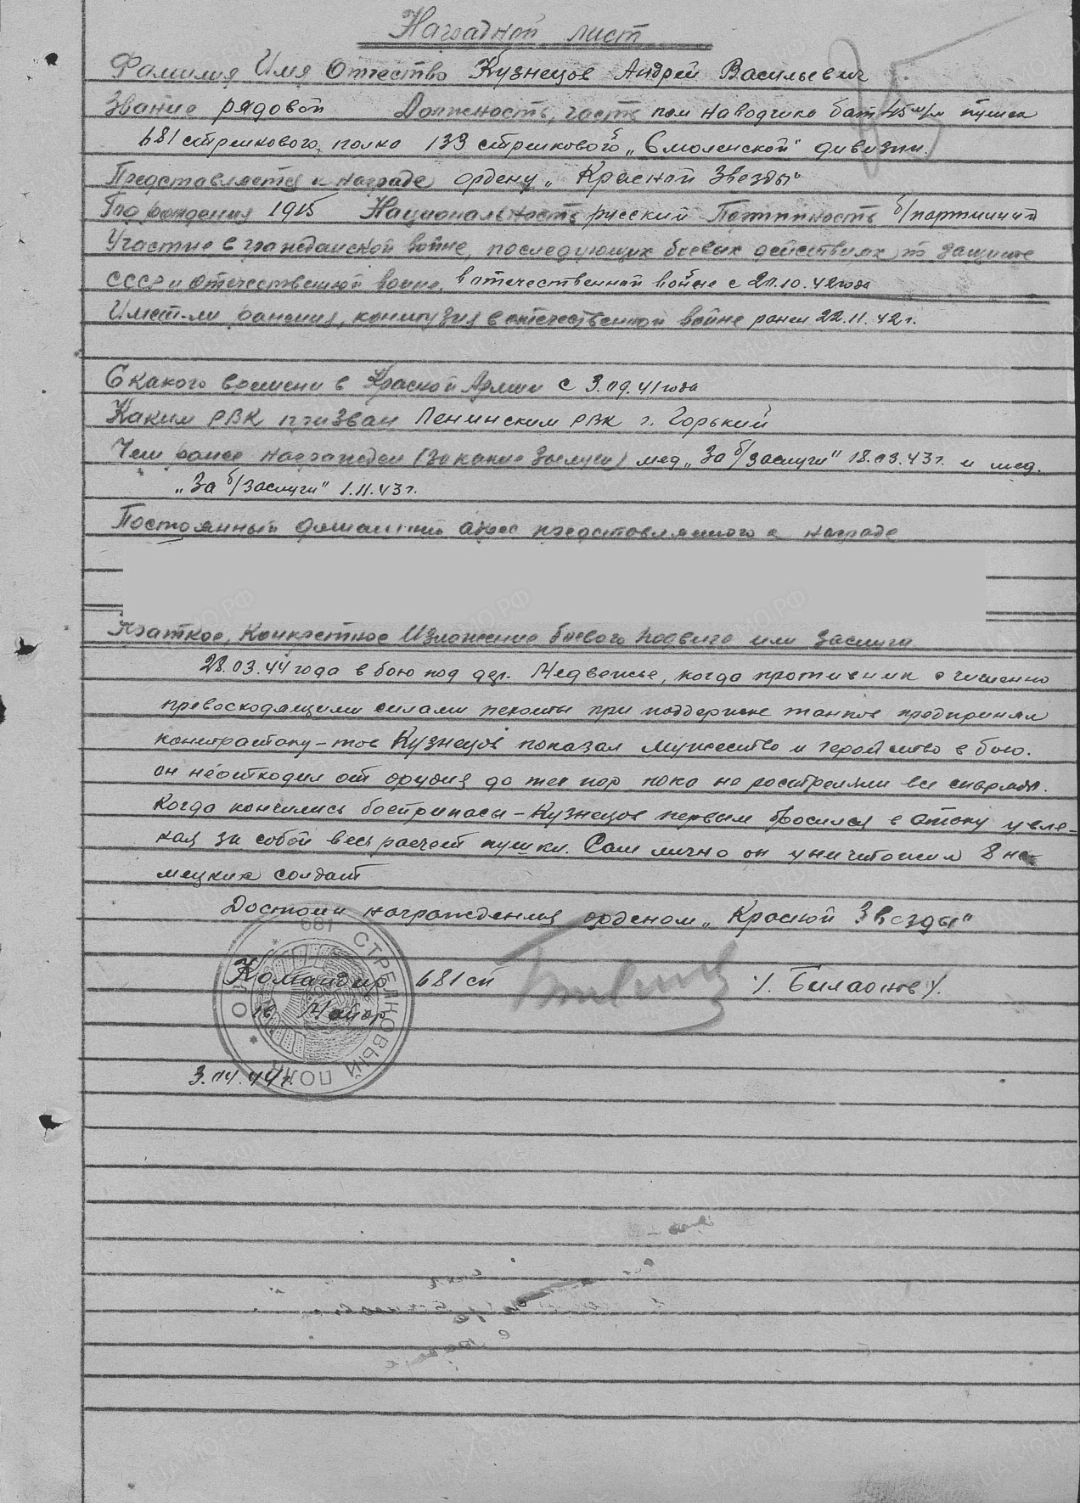 Наградной лист
Фамилия Имя Отчество Кузнецов Андрей Васильевич
Звание рядовой Должность, часть пом наводчика бат 45 м/м пушек
681 стрелкового полка 133 стрелковой „Смоленской" дивизии.
Представляется к награде ордену „Красной Звезды"
Год рождения 1915 Национальность русский Партийность б/партийный
Участие в гражданской войне, последующих боевых действиях по защите
СССР и отечественной войне, в отечественной войне с 20.10.42 года
Имеет-ли ранения, контузия в отечественной войне ранен 22.11.42 г.
С какого времени в Красной Армии с 3.09.41 года
Каким РВК призван Ленинским РВК г. Горький
Чем ранее награжден (за какие заслуги) мед „За б/заслуги" 18.03.43 г. и мед.
„За б/заслуги" 1.11.43 г.
Постоянный домашний адрес представляемого к награде
Краткое, Конкретное Изложение боевого подвига или заслуги
28.03.44 года в бою под дер. Медвежье, когда противник численно
превосходящими силами пехоты при поддержке танков предпринял
контратаку - тов Кузнецов показал мужество и геройство в бою.
он не отходил от орудия до тех пор пока не расстреляли все снаряды.
Когда кончились боеприпасы - Кузнецов первым бросился в атаку увле-
кая за собой весь расчет пушки. Сам лично он уничтожил 8 не-
мецких солдат
Достоин награждения орденом „Красной Звезды"
Командир 681 сп
гв Майор
3.04.44 г.
681 СТРЕЛКОВЫЙ ПОЛК
ЦАМО.РФ